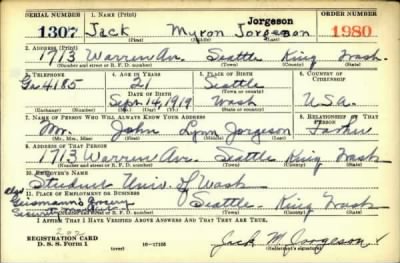 SERIAL NUMBER 1. NAME (Print) Jorgeson ORDER NUMBER
1307 Jack Myron Jorgeson 1980
(First) (Middle) (Last)
2. ADDRESS (Print)
1713 Warren Av. Seattle King Wash.
(Number and street or R. F. D. number) (Town) (County) (State)
3. TELEPHONE 4. AGE IN YEARS 5. PLACE OF BIRTH 6. COUNTRY OF CITIZENSHIP
Ga 4185 21 Seattle
DATE OF BIRTH (Town or county)
Sept. 14, 1919 Wash U.S.A.
(Exchange) (Number) (Mo.) (Day) (Yr.) (State or country)
7. NAME OF PERSON WHO WILL ALWAYS KNOW YOUR ADDRESS 8. RELATIONSHIP OF THAT PERSON
Mr. John Lynn Jorgeson Father
(Mr., Mrs., Miss) (First) (Middle) (Last)
9. ADDRESS OF THAT PERSON
1713 Warren Av. Seattle King Wash
(Number and street or R. F. D. number) (Town) (County) (State)
10. EMPLOYER'S NAME
Student Univ. of Wash
11. PLACE OF EMPLOYMENT OR BUSINESS
Grocery Seattle. King Wash
(Number and street or R. F. D. number) (Town) (County) (State)
I AFFIRM THAT I HAVE VERIFIED ABOVE ANSWERS AND THAT THEY ARE TRUE.
REGISTRATION CARD
D. S. S. Form 1 (over) 16—17105 Jack M. Jorgeson
(Registrant's signature)